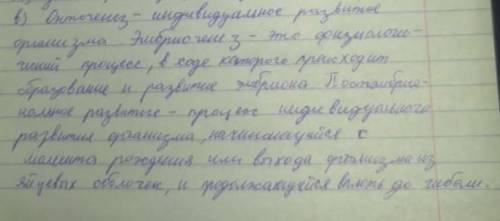 в) Онтогенез - индивидуальное развитие
организма Эмбриогенез - это физиологи-
ческий процесс, в ходе которого происходит
образование и развитие эмбриона Постэмбрио-
нальное развитие - процесс индивидуального
развития организма, начинающийся с
момента рождения или выхода организма из
яйцевых оболочек, и продолжающийся вплоть до гибели.